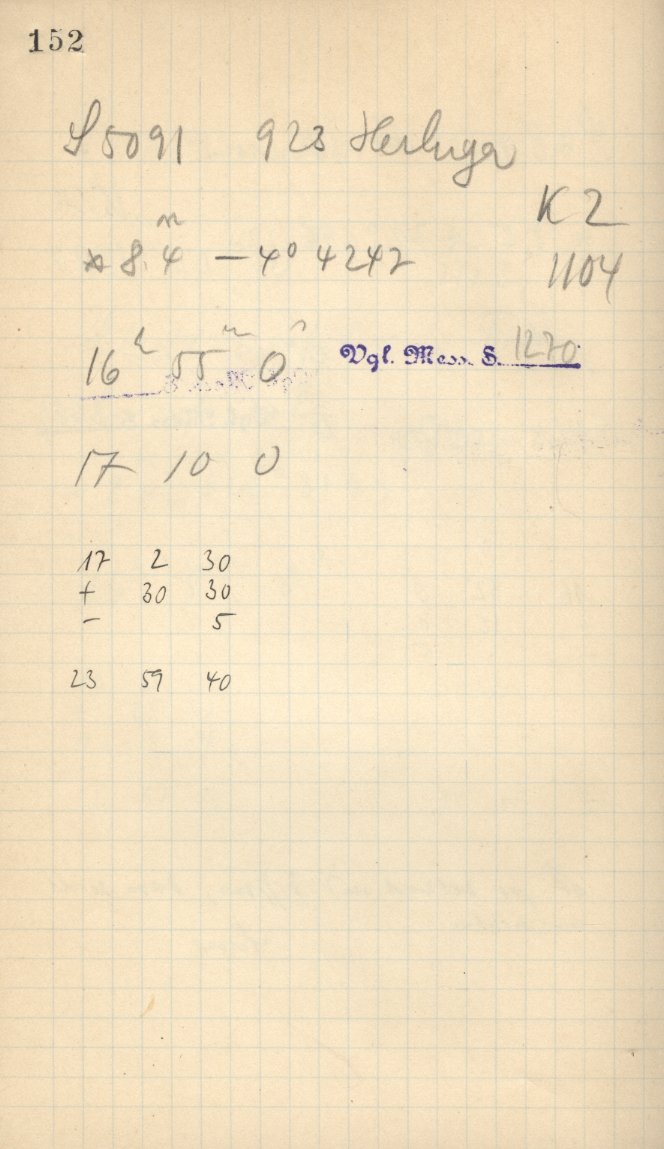 152
S 5091 923 Herluga
K 2
* 8.4ᵐ – 4° 4242
1104
16ʰ 55ᵐ 0ˢ
Vgl. Mess. S. 1270
17 10 0
17 2 30
+ 30 30
– 5
23 59 40